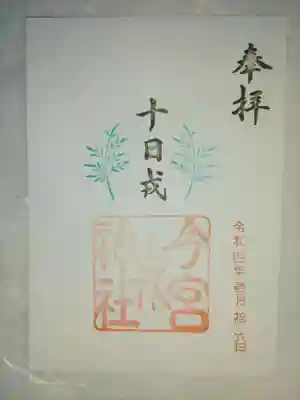 奉拝
十日戎
今宮戎神社
令和四年壱月拾六日